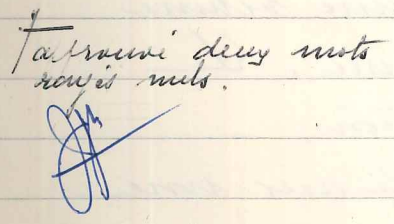 approuvé deux mots
rayés nuls.